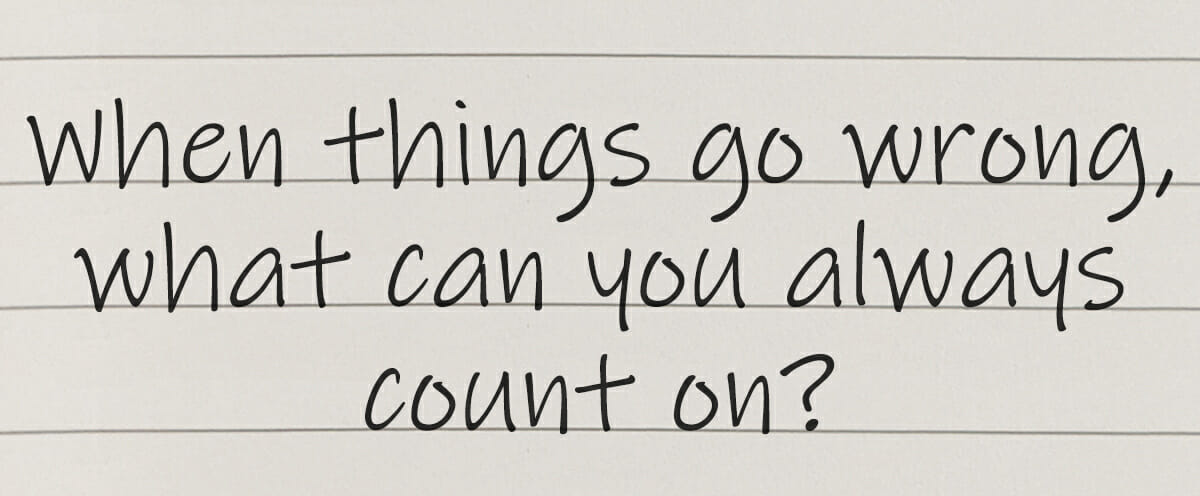 When things go wrong,
what can you always
count on?